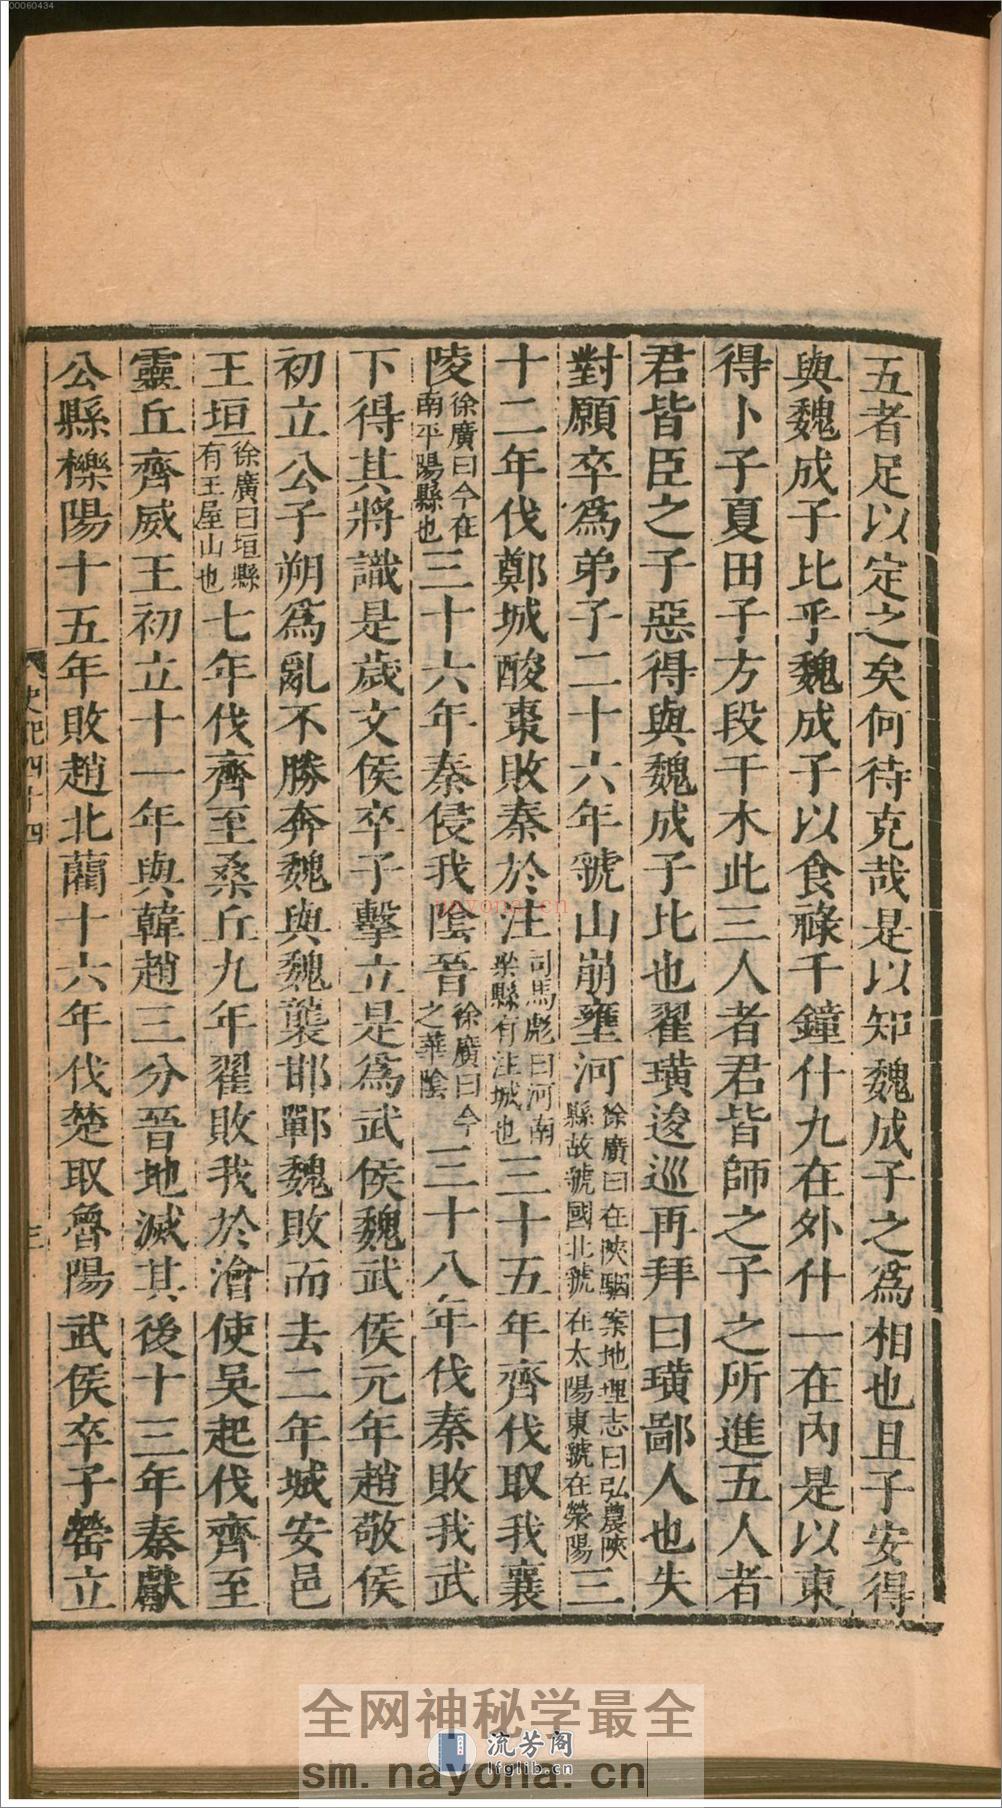 00060434
五者足以定之矣何待克哉是以知魏成子之爲相也且子安得
與魏成子比乎魏成子以食祿千鐘什九在外什一在內是以東
得卜子夏田子方段干木此三人者君皆師之子之所進五人者
君皆臣之子惡得與魏成子比也翟璜逡巡再拜曰璜鄙人也失
對願卒爲弟子二十六年虢山崩壅河徐廣曰在陝駰案地理志曰弘農陝縣故虢國北虢在太陽東虢在滎陽三
十二年伐鄭城酸棗敗秦於注司馬彪曰河南梁縣有注城也三十五年齊伐取我襄
陵徐廣曰今在南平陽縣也三十六年秦侵我陰晉徐廣曰今之華陰三十八年伐秦敗我武
下得其將識是歲文侯卒子擊立是爲武侯魏武侯元年趙敬侯
初立公子朔爲亂不勝奔魏與魏襲邯鄲魏敗而去二年城安邑
王垣徐廣曰垣縣有王屋山也七年伐齊至桑丘九年翟敗我於澮使吳起伐齊至
靈丘齊威王初立十一年與韓趙三分晉地滅其後十三年秦獻
公縣櫟陽十五年敗趙北藺十六年伐楚取魯陽武侯卒子罃立
史記四十四
三
nayona.cn
全网神秘学最全
流芳阁
lfglib.cn
sm.nayona.cn